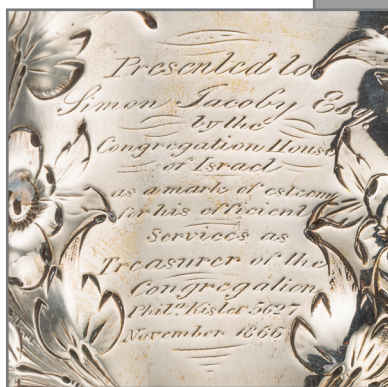 Presented to
Simon Jacoby Esq
by the
Congregation House
of Israel
as a mark of esteem
for his efficient
Services as
Treasurer of the
Congregation
Phila. Kisler 5627
November 1866